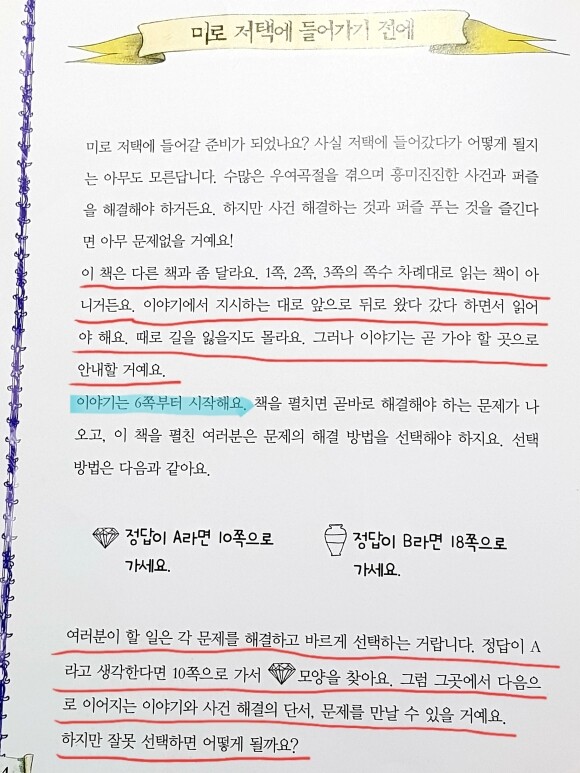 미로 저택에 들어가기 전에
미로 저택에 들어갈 준비가 되었나요? 사실 저택에 들어갔다가 어떻게 될지
는 아무도 모른답니다. 수많은 우여곡절을 겪으며 흥미진진한 사건과 퍼즐
을 해결해야 하거든요. 하지만 사건 해결하는 것과 퍼즐 푸는 것을 즐긴다
면 아무 문제없을 거예요!
이 책은 다른 책과 좀 달라요. 1쪽, 2쪽, 3쪽의 쪽수 차례대로 읽는 책이 아
니거든요. 이야기에서 지시하는 대로 앞으로 뒤로 왔다 갔다 하면서 읽어
야 해요. 때로 길을 잃을지도 몰라요. 그러나 이야기는 곧 가야 할 곳으로
안내할 거예요.
이야기는 6쪽부터 시작해요. 책을 펼치면 곧바로 해결해야 하는 문제가 나
오고, 이 책을 펼친 여러분은 문제의 해결 방법을 선택해야 하지요. 선택
방법은 다음과 같아요.
정답이 A라면 10쪽으로
가세요.
정답이 B라면 18쪽으로
가세요.
여러분이 할 일은 각 문제를 해결하고 바르게 선택하는 거랍니다. 정답이 A
라고 생각한다면 10쪽으로 가서 모양을 찾아요. 그럼 그곳에서 다음으
로 이어지는 이야기와 사건 해결의 단서, 문제를 만날 수 있을 거예요.
하지만 잘못 선택하면 어떻게 될까요?
4